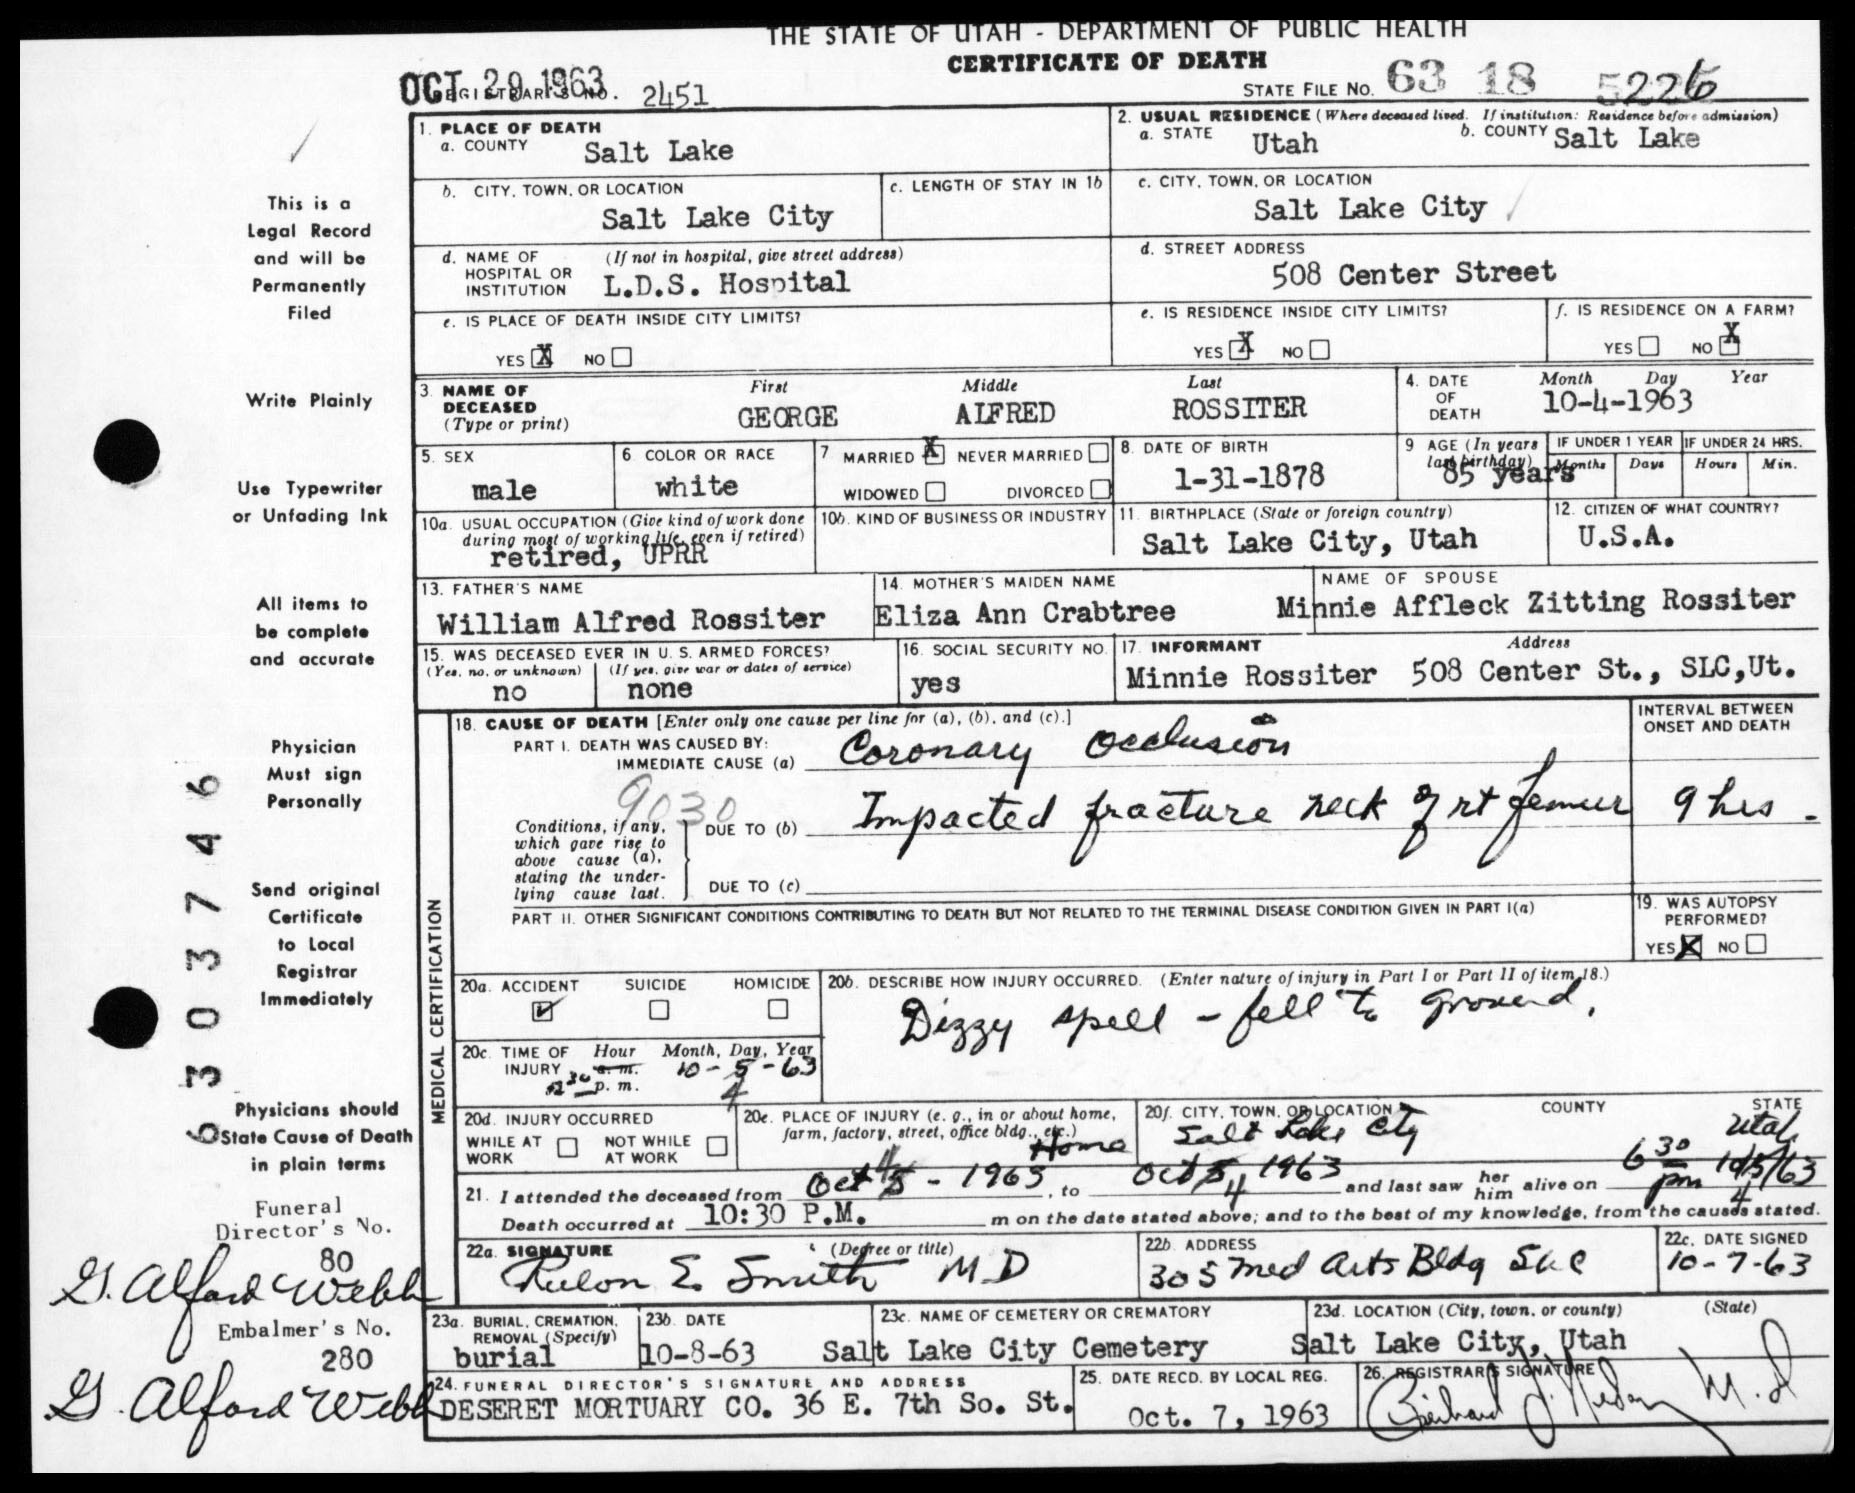 THE STATE OF UTAH - DEPARTMENT OF PUBLIC HEALTH
CERTIFICATE OF DEATH
OCT 29 1963
REGISTRAR'S NO. 2451
STATE FILE NO. 63 18 5226
1. PLACE OF DEATH
a. COUNTY Salt Lake
2. USUAL RESIDENCE (Where deceased lived. If institution: Residence before admission)
a. STATE Utah b. COUNTY Salt Lake
b. CITY, TOWN, OR LOCATION Salt Lake City
c. LENGTH OF STAY IN 1b
c. CITY, TOWN, OR LOCATION Salt Lake City
d. NAME OF HOSPITAL OR INSTITUTION (If not in hospital, give street address) L.D.S. Hospital
d. STREET ADDRESS 508 Center Street
e. IS PLACE OF DEATH INSIDE CITY LIMITS?
YES X NO
e. IS RESIDENCE INSIDE CITY LIMITS?
YES X NO
f. IS RESIDENCE ON A FARM?
YES NO X
3. NAME OF DECEASED (Type or print)
First Middle Last
GEORGE ALFRED ROSSITER
4. DATE OF DEATH Month Day Year
10-4-1963
5. SEX male
6. COLOR OR RACE white
7 MARRIED X NEVER MARRIED
WIDOWED DIVORCED
8. DATE OF BIRTH 1-31-1878
9 AGE (In years last birthday) 85 years
IF UNDER 1 YEAR Months Days
IF UNDER 24 HRS. Hours Min.
10a. USUAL OCCUPATION (Give kind of work done during most of working life, even if retired) retired, UPRR
10b. KIND OF BUSINESS OR INDUSTRY
11. BIRTHPLACE (State or foreign country) Salt Lake City, Utah
12. CITIZEN OF WHAT COUNTRY? U.S.A.
13. FATHER'S NAME William Alfred Rossiter
14. MOTHER'S MAIDEN NAME Eliza Ann Crabtree
NAME OF SPOUSE Minnie Affleck Zitting Rossiter
15. WAS DECEASED EVER IN U. S. ARMED FORCES?
(Yes, no, or unknown) no (If yes, give war or dates of service) none
16. SOCIAL SECURITY NO. yes
17. INFORMANT Address
Minnie Rossiter 508 Center St., SLC,Ut.
MEDICAL CERTIFICATION
18. CAUSE OF DEATH [Enter only one cause per line for (a), (b), and (c).]
INTERVAL BETWEEN ONSET AND DEATH
PART I. DEATH WAS CAUSED BY:
IMMEDIATE CAUSE (a) Coronary Occlusion
9030
Conditions, if any, which gave rise to above cause (a), stating the underlying cause last.
DUE TO (b) Impacted fracture neck of rt femur 9 hrs.
DUE TO (c)
PART II. OTHER SIGNIFICANT CONDITIONS CONTRIBUTING TO DEATH BUT NOT RELATED TO THE TERMINAL DISEASE CONDITION GIVEN IN PART I(a)
19. WAS AUTOPSY PERFORMED?
YES X NO
20a. ACCIDENT SUICIDE HOMICIDE
20b. DESCRIBE HOW INJURY OCCURRED. (Enter nature of injury in Part I or Part II of item 18.)
Dizzy spell - fell to ground.
20c. TIME OF INJURY Hour Month, Day, Year
a. m. p. m. 10-5-63
4
20d. INJURY OCCURRED
WHILE AT WORK NOT WHILE AT WORK
20e. PLACE OF INJURY (e. g., in or about home, farm, factory, street, office bldg., etc.) Home
20f. CITY, TOWN, OR LOCATION COUNTY STATE
Salt Lake City Utah
21. I attended the deceased from Oct 5 4 - 1963, to Oct 5 4 1963 and last saw her him alive on 6 30 pm 10/5/63 4
Death occurred at 10:30 P.M. m on the date stated above; and to the best of my knowledge, from the causes stated.
22a. SIGNATURE (Degree or title) Rulon E. Smith MD
22b. ADDRESS 305 Med Arts Bldg SLC
22c. DATE SIGNED 10-7-63
23a. BURIAL, CREMATION, REMOVAL (Specify) burial
23b. DATE 10-8-63
23c. NAME OF CEMETERY OR CREMATORY Salt Lake City Cemetery
23d. LOCATION (City, town, or county) (State) Salt Lake City, Utah
24. FUNERAL DIRECTOR'S SIGNATURE AND ADDRESS
DESERET MORTUARY CO. 36 E. 7th So. St.
25. DATE RECD. BY LOCAL REG. Oct. 7, 1963
26. REGISTRAR'S SIGNATURE M.D
This is a
Legal Record
and will be
Permanently
Filed
Write Plainly
Use Typewriter
or Unfading Ink
All items to
be complete
and accurate
Physician
Must sign
Personally
Send original
Certificate
to Local
Registrar
Immediately
Physicians should
State Cause of Death
in plain terms
Funeral
Director's No.
80
G. Alford Webb
Embalmer's No.
280
G. Alford Webb
6303746